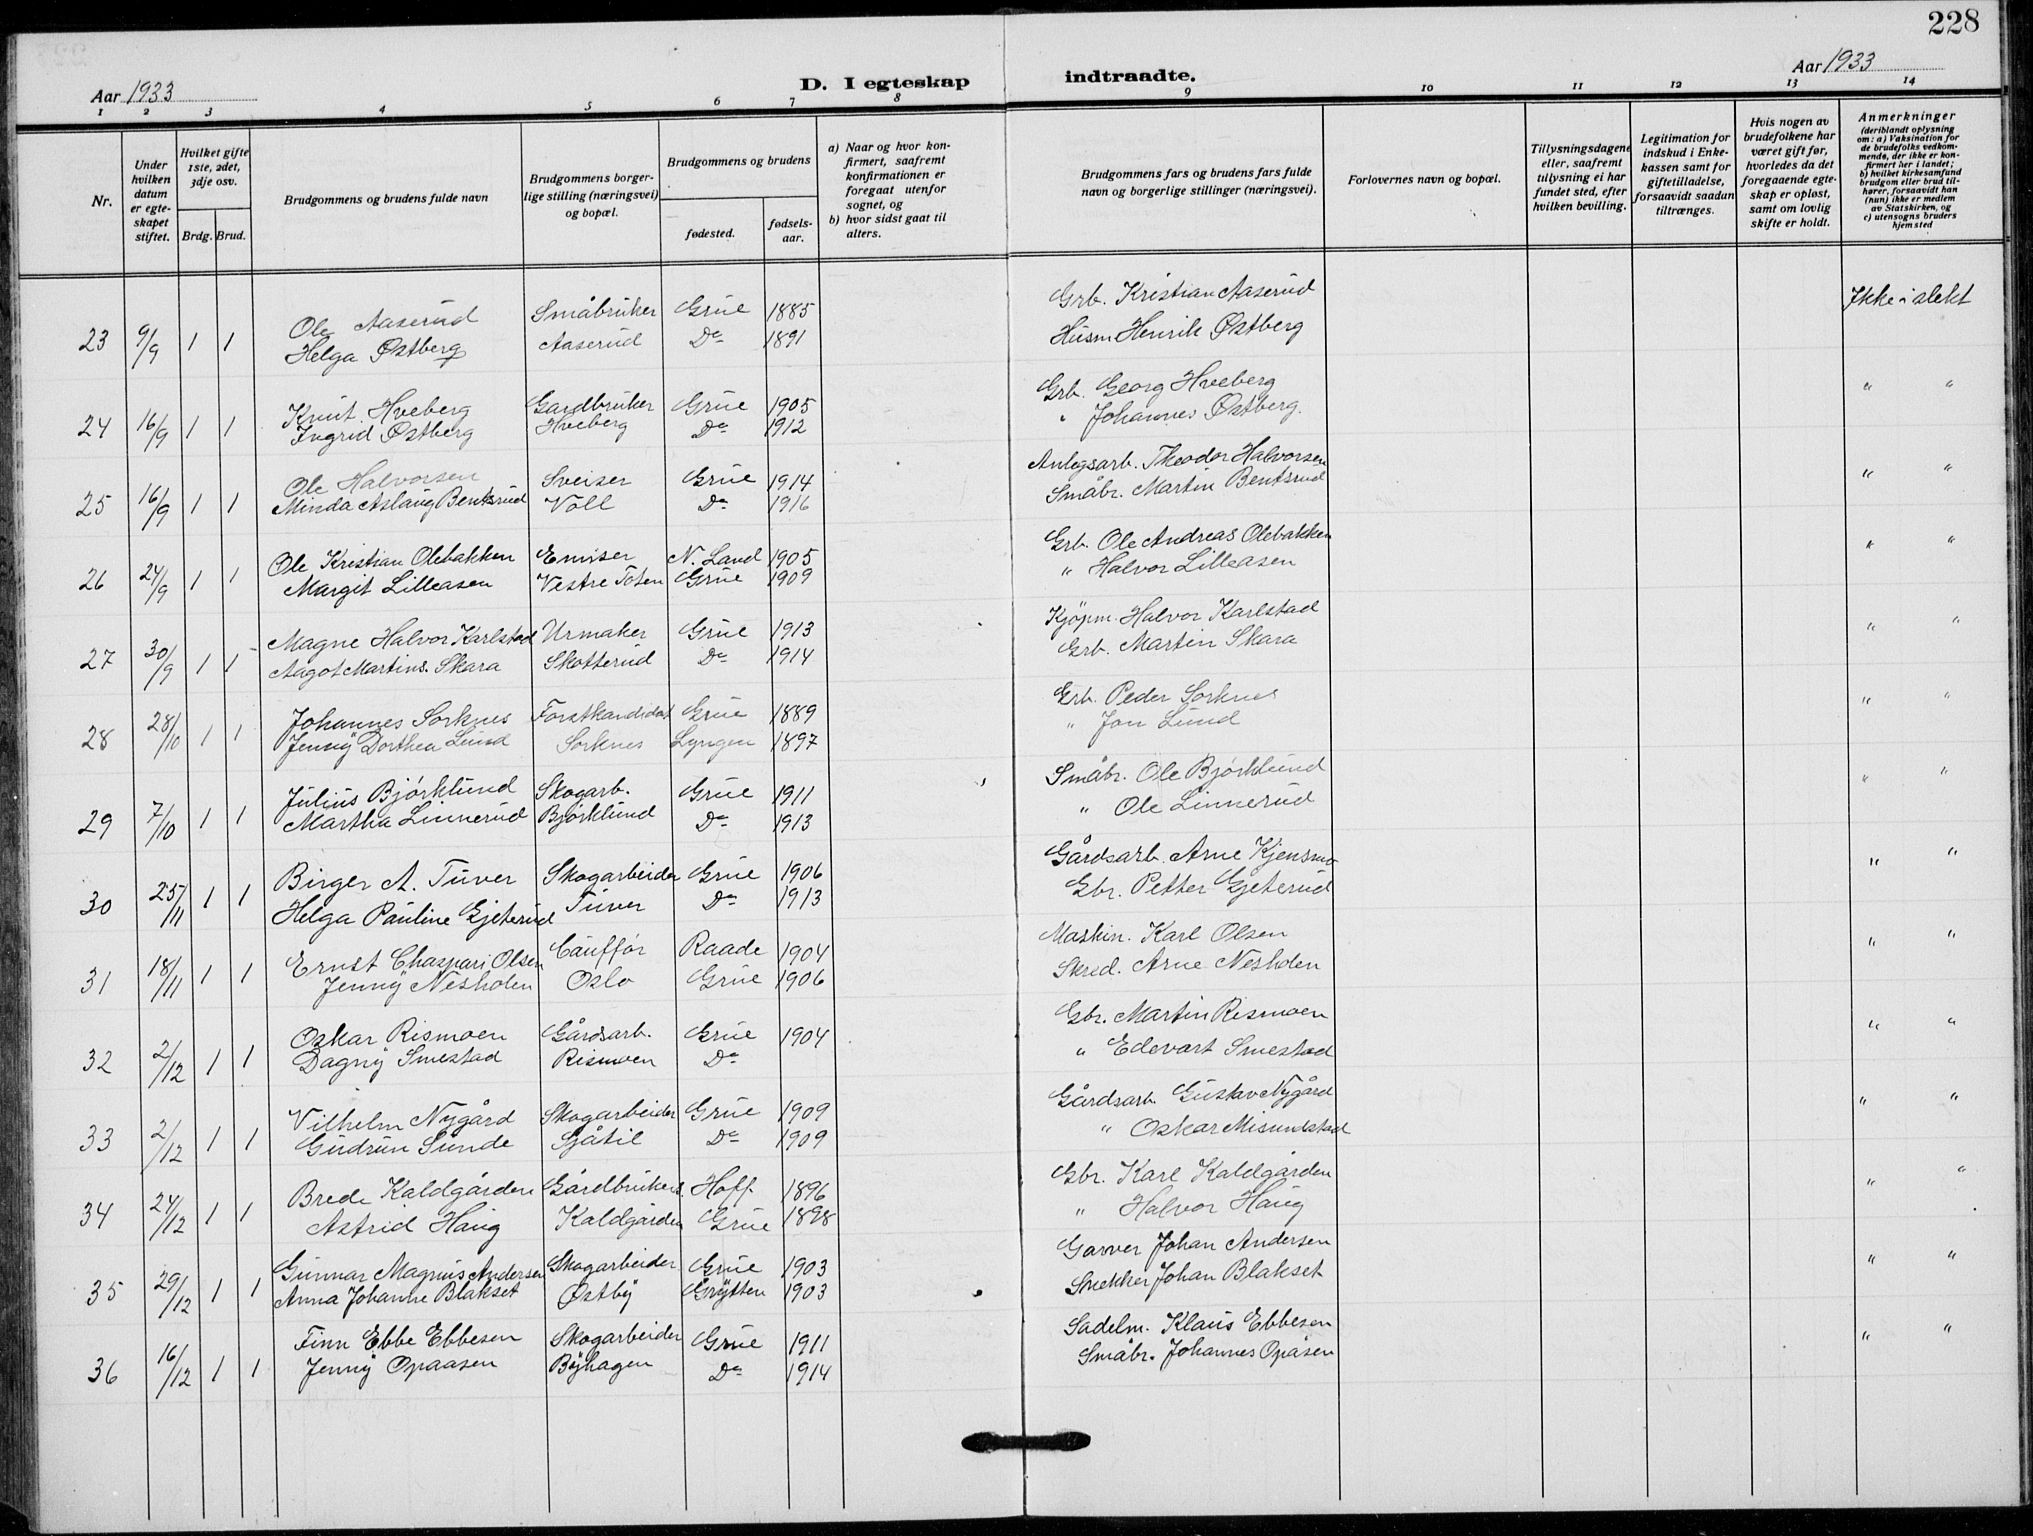 228
Aar 1933
D. I egteskap indtraadte.
Aar 1933
1 2 3 4 5 6 7 8 9 10 11 12 13 14
Nr.
Under hvilken datum er egteskapet stiftet.
Hvilket gifte 1ste, 2det, 3dje osv.
Brdg. Brud.
Brudgommens og brudens fulde navn
Brudgommens borgerlige stilling (næringsvei) og bopæl.
Brudgommens og brudens
fødested. fødselsaar.
a) Naar og hvor konfirmert, saafremt konfirmationen er foregaat utenfor sognet, og
b) hvor sidst gaat til alters.
Brudgommens fars og brudens fars fulde navn og borgerlige stillinger (næringsvei).
Forlovernes navn og bopæl.
Tillysningsdagene eller, saafremt tillysning ei har fundet sted, efter hvilken bevilling.
Legitimation for indskud i Enkekassen samt for giftetilladelse, forsaavidt saadan tiltrænges.
Hvis nogen av brudefolkene har været gift før, hvorledes da det foregaaende egteskap er opløst, samt om lovlig skifte er holdt.
Anmerkninger
(deriblandt oplysning om: a) Vaksination for de brudefolks vedkommende, der ikke er konfirmert her i landet; b) hvilket kirkesamfund brudgom eller brud tilhører, forsaavidt han (hun) ikke er medlem av Statskirken, og c) utensogns bruders hjemsted
Ole Aaserud Småbruker Grue 1885 Grb. Kristian Aaserud Ikke i slekt
23 9/9 1 1 Helga Østberg Aaserud Do 1891 Husm Henrik Østberg
Knut Hveberg Gardbruker Grue 1905 Grb. Georg Hveberg " "
24 16/9 1 1 Ingrid Østberg Hveberg Do 1912 " Johannes Østberg.
Ole Halvorsen Sveiser Grue 1914 Anlegsarb. Theodor Halvorsen " "
25 16/9 1 1 Minda Aslaug Bentsrud Voll Do 1916 Småbr. Martin Bentsrud
Ole Kristian Olebakken N. Land 1905 Grb. Ole Andreas Olebakken " "
26 24/9 1 1 Margit Lilleasen Vestre Toten Grue 1909 " Halvor Lilleasen
Magne Halvor Karlstad Urmaker Grue 1913 Kjøpm. Halvor Karlstad " "
27 30/9 1 1 Aagot Martins. Skara Skotterud Do 1914 Grb. Martin Skara
Johannes Sorknes Forstkandidat Grue 1889 Grb. Peder Sorknes " "
28 28/10 1 1 Jenny Dorthea Lund Sorknes Lyngen 1897 " Jon Lund
Julius Bjørklund Skogarb. Grue 1911 Småbr. Ole Bjørklund " "
29 7/10 1 1 Martha Linnerud Bjørklund Do 1913 " Ole Linnerud
Birger A. Tuver Skogarbeider Grue 1906 Gårdsarb. Arne Kjensmo " "
30 25/11 1 1 Helga Pauline Gjeterud Tuver Do 1913 Gbr. Petter Gjeterud
Ernst Chaspari Olsen Cauffør Raade 1904 Maskin. Karl Olsen " "
31 18/11 1 1 Jenny Nesholen Oslo Grue 1906 Skred. Arne Nesholen
Oskar Rismoen Gårdsarb. Grue 1904 Gbr. Martin Rismoen " "
32 2/12 1 1 Dagny Smestad Rismoen Do " Edevart Smestad
Vilhelm Nygård Skogarbeider Grue 1909 Gårdsarb. Gustav Nygård " "
33 2/12 1 1 Gudrun Sunde Sjåtil Do 1909 " Oskar Misundstad
Brede Kaldgården Gårdbruker Hoff. 1896 Gbr. Karl Kaldgården " "
34 24/12 1 1 Astrid Haug Kaldgården Grue 1898 " Halvor Haug
Gunnar Magnus Andersen Skogarbeider Grue 1903 Garver Johan Andersen " "
35 29/12 1 1 Anna Johanne Blakset Østby Grytten 1903 Snekker Johan Blakset
Finn Ebbe Ebbesen Skogarbeider Grue 1911 Sadelm. Klaus Ebbesen " "
36 16/12 1 1 Jenny Opaasen Byhagen Do 1914 Småbr. Johannes Opåsen